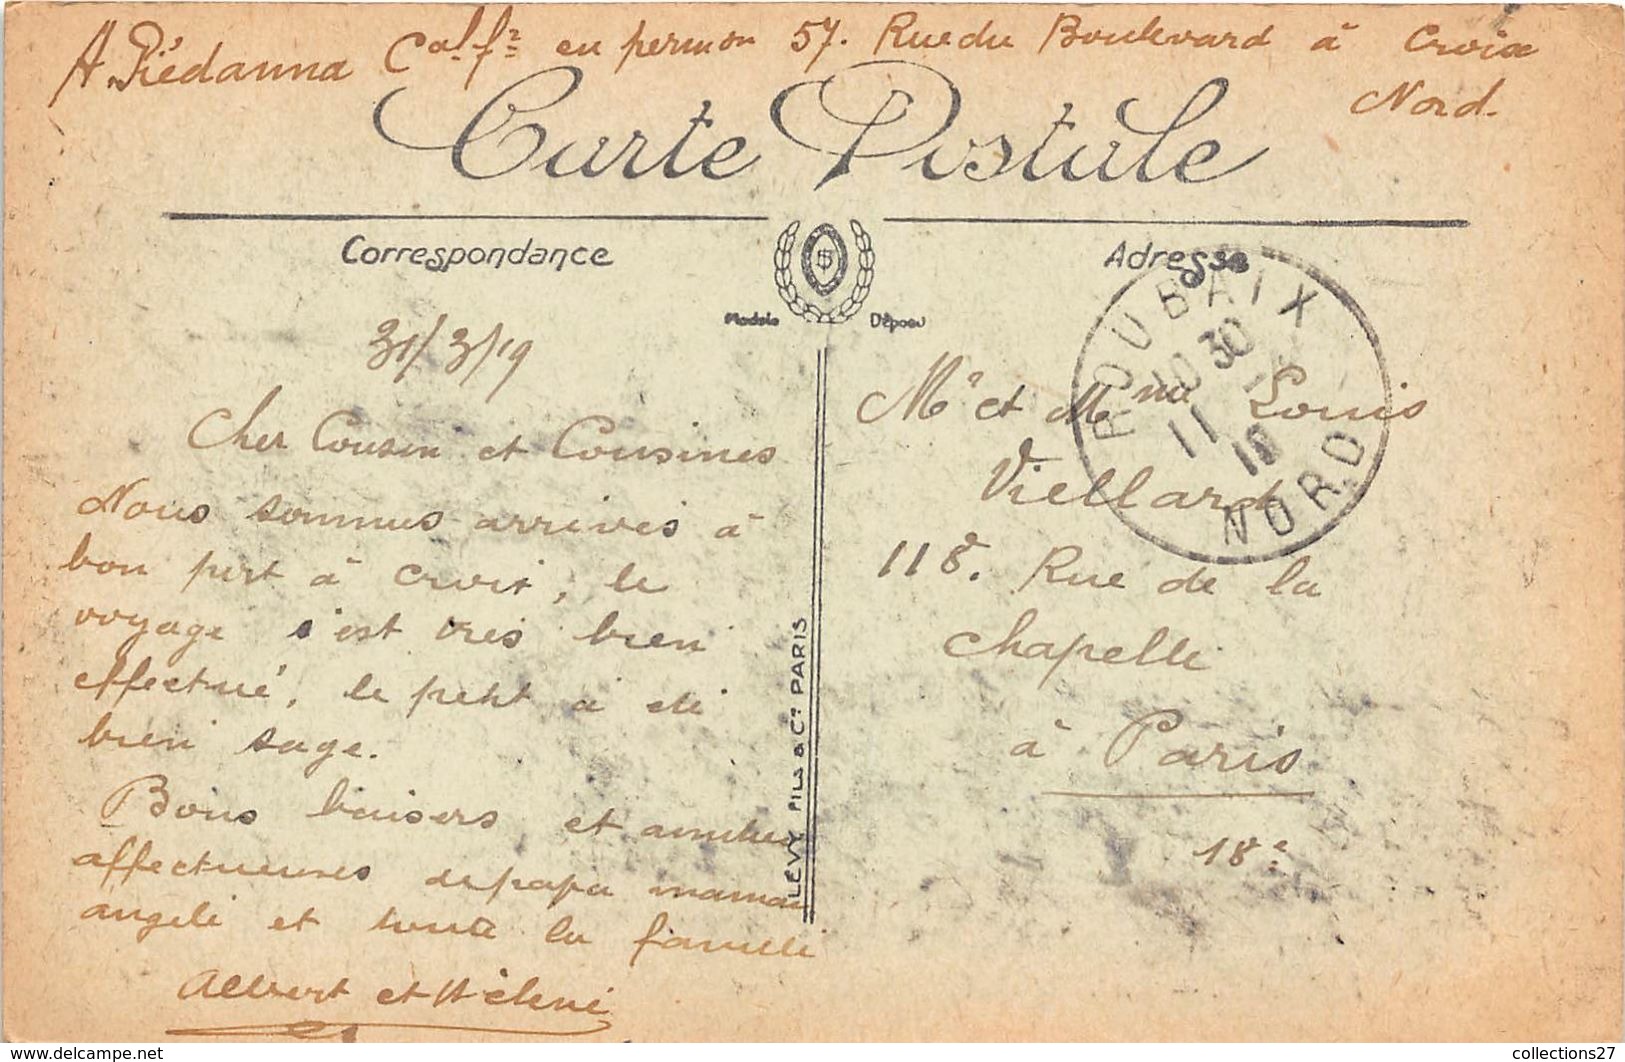 A. Piédanna Cal f² en permon 57. Rue du Boulevard à Croix
Nord.
Carte Postale
Correspondance
Adresse
Modèle Déposé
ROUBAIX
NORD
31/3/19
Cher Cousin et Cousines
Nous sommes arrivés à
bon port à Croix, le
voyage s'est très bien
effectué, le petit a été
bien sage.
Bons baisers et amitiés
affectueuses de papa maman
angèle et toute la famille
Albert et Hélène
LÉVY FILS & Cie PARIS
Mr et Mme Louis
Viellard
118. Rue de la
Chapelle
à Paris
18e
www.delcampe.net
collections27